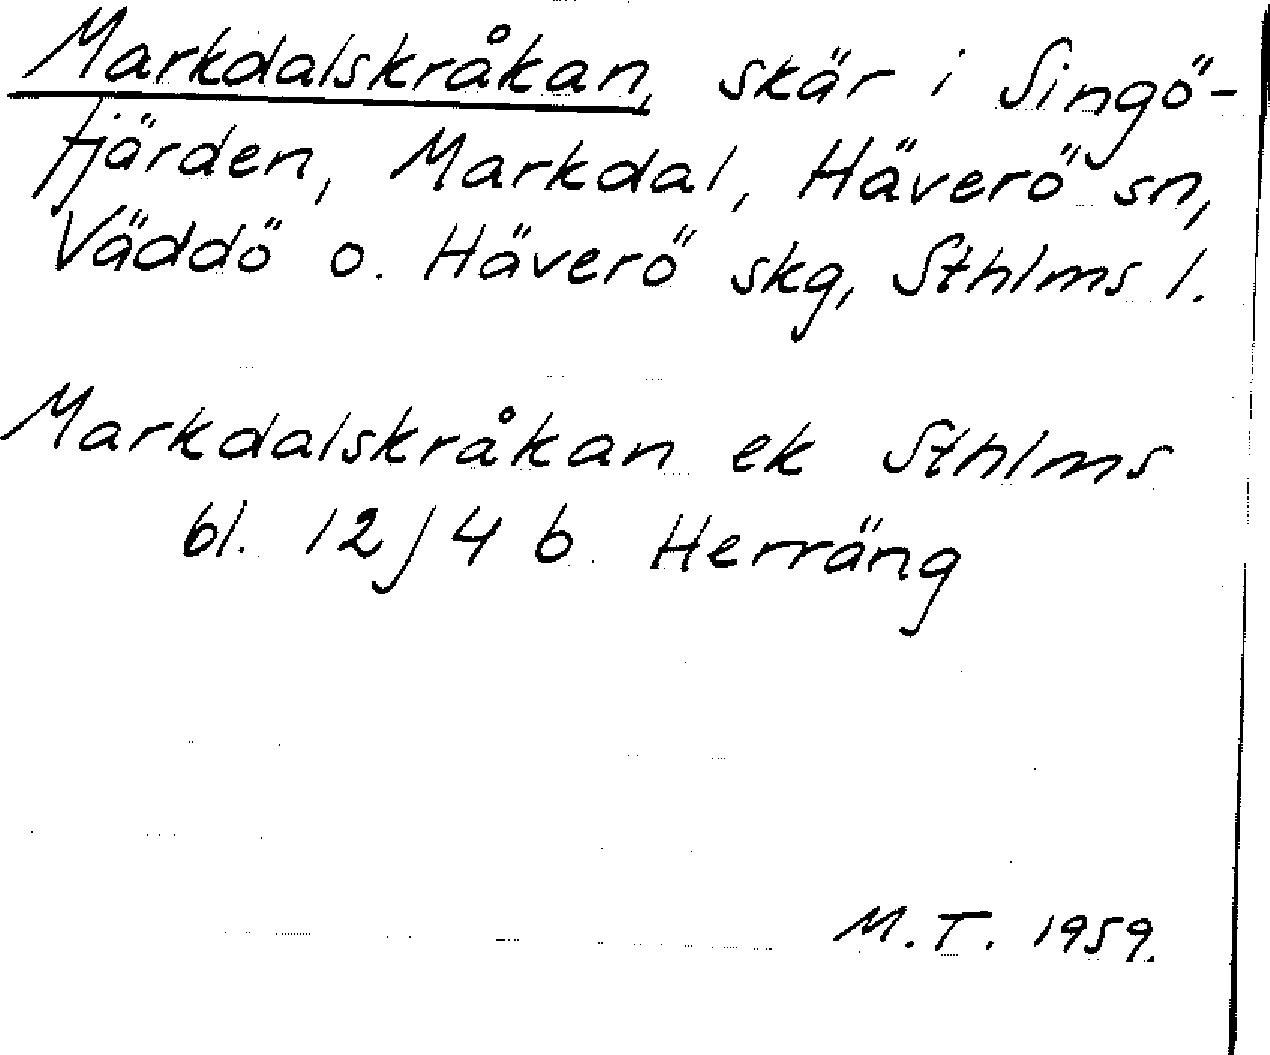 Markdalskråkan, skär i Singö-
fjärden, Markdal, Häverö sn,
Väddö o. Häverö skg, Sthlms l.
Markdalskråkan ek Sthlms
bl. 12 J 4 b Herräng
M.T. 1959.